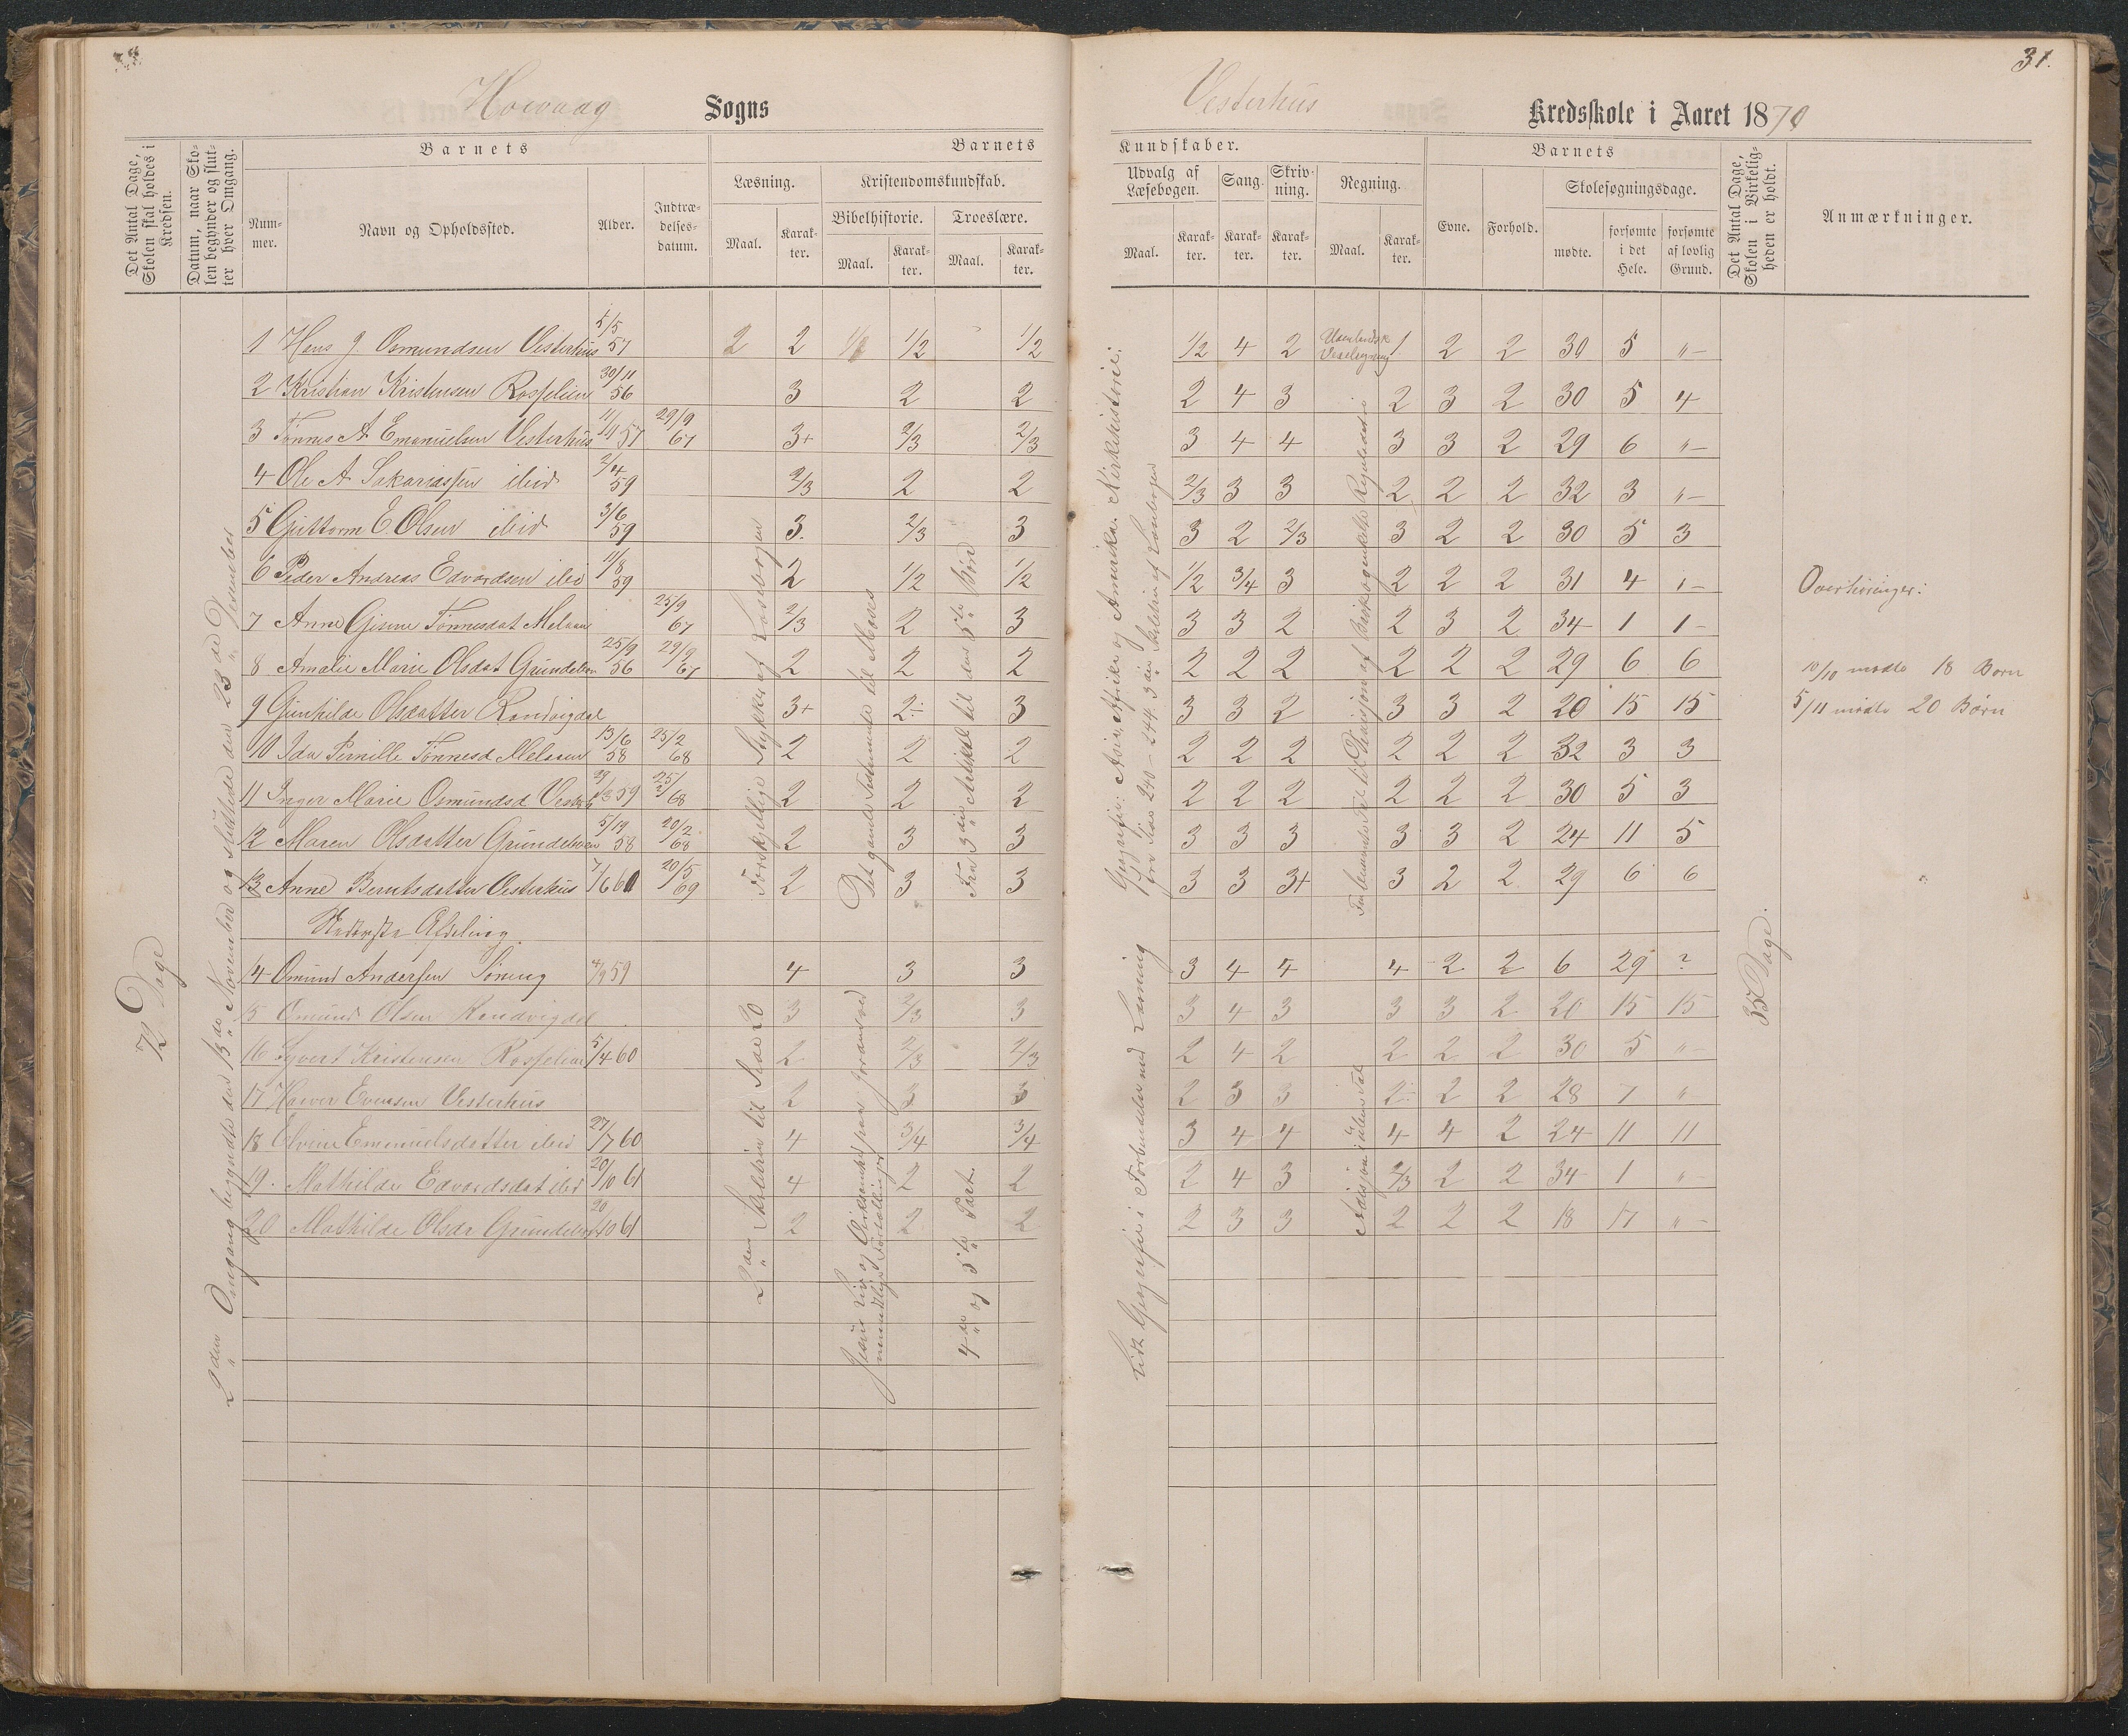 31.
Hovaag Sogns
Vesterhus Kredsskole i Aaret 1870
Det Antal Dage, Skolen skal holdes i Kredsen.
Datum, naar Skolen begynder og slutter hver Omgang.
Barnets
Nummer.
Navn og Opholdssted.
Alder.
Indtrædelsesdatum.
Barnets
Læsning.
Maal.
Karakter.
Kristendomskundskab.
Bibelhistorie.
Maal.
Karakter.
Troeslære.
Maal.
Karakter.
Kundskaber.
Udvalg af Læsebogen.
Maal.
Karakter.
Sang.
Karakter.
Skrivning.
Karakter.
Regning.
Maal.
Karakter.
Barnets
Evne.
Forhold.
Skolesøgningsdage.
mødte.
forsømte i det Hele.
forsømte af lovlig Grund.
Det Antal Dage, Skolen i Virkeligheden er holdt.
Anmærkninger.
72 Dage
2den Omgang begyndte den 13de November og sluttede den 23de Desember
1 Hans J. Osmundsen Vesterhus 5/5 57 2 2 1/2 1/2 1/2 1/2 4 2 1 2 2 30 5 "-
2 Kristian Kristensen Rosselien 30/11 56 3 2 2 2 4 3 2 3 2 30 5 4
3 Tønnes A Emanuelsen Vesterhus 11/11 57 29/9 67 3+ 2/3 2/3 3 4 4 3 3 2 29 6 "-
4 Ole A Sakariassen ibid 2/4 59 2/3 2 2 2/3 3 3 2 2 2 32 3 "-
5 Guttorm E. Olsen ibid 3/6 59 3. 2/3 3 3 2 2/3 3 2 2 30 5 3
6 Peder Andreas Edvardsen ibid 11/8 59 2 1/2 1/2 1/2 3/4 3 2 2 2 31 4 "-
7 Anne Gisine Tønnesdat Melaan 25/9 67 2/3 2 3 3 3 2 2 3 2 34 1 1-
8 Amalie Marie Olsdat Grundelsen 25/9 56 29/9 67 2 2 2 2 2 2 2 2 2 29 6 6
9 Gunhilde Olsdatter Randvigdal 3+ 2 3 3 3 2 3 3 2 20 15 15
10 Ida Pernille Tønnesd Melaan 13/6 58 25/2 68 2 2 2 2 2 2 2 2 2 32 3 3
11 Inger Marie Osmundsd Vesterh 59 68 2 2 2 2 2 2 2 2 2 30 5 3
12 Maren Olsdatter Grundelsen 58 20/2 68 2 3 3 3 3 3 3 3 2 24 11 5
13 Anne Berntsdatter Vesterhus 7/6 60 20/5 69 2 3 3 3 3 3+ 3 2 2 29 6 6
Nederste Afdeling
14 Omund Andersen 4/9 59 4 3 3 3 4 4 4 2 2 6 29 ?
15 Omund Olsen Randvigdal 3 2/3 3 3 4 3 3 3 2 20 15 15
16 Syvert Kristensen Rosselien 5/4 60 2 2/3 2/3 2 4 2 2 2 2 30 5 "-
17 Evensen Vesterhus 2 3 3 2 3 3 2 2 2 28 7 "
18 Elvine Emanuelsdatter ibid 27/7 60 4 3/4 3/4 3 4 4 4 4 2 24 11 11
19. Mathilde Edvardsdat ibid 20/10 61 4 2 2 2 4 3 2/3 2 2 34 1 "-
20 Mathilde Olsdr Grundelsen 20/10 61 2 2 2 2 3 3 2 2 2 18 17 "-
Forskjellige Stykker af Læsebogen
Det gamle Testamente til Moses
Fra 3die Artikel til den 5te Bøn
2den Skoletrin til Side 20
Jesus Liv og Virksomhed
mundtlige Fortællinger
4de og 5te Part.
Geografi: Asia, Afrika og Amerika. Kirkehistorie:
fra Side 240-244. 3die Skoletrin af Læsebogen
Lidt Geografi i Forbindelse med Læsning
Udenlandsk
Addisjon i Tal
35 Dage.
Overhøringer:
10/10 mødte 18 Børn
5/11 mødte 20 Børn